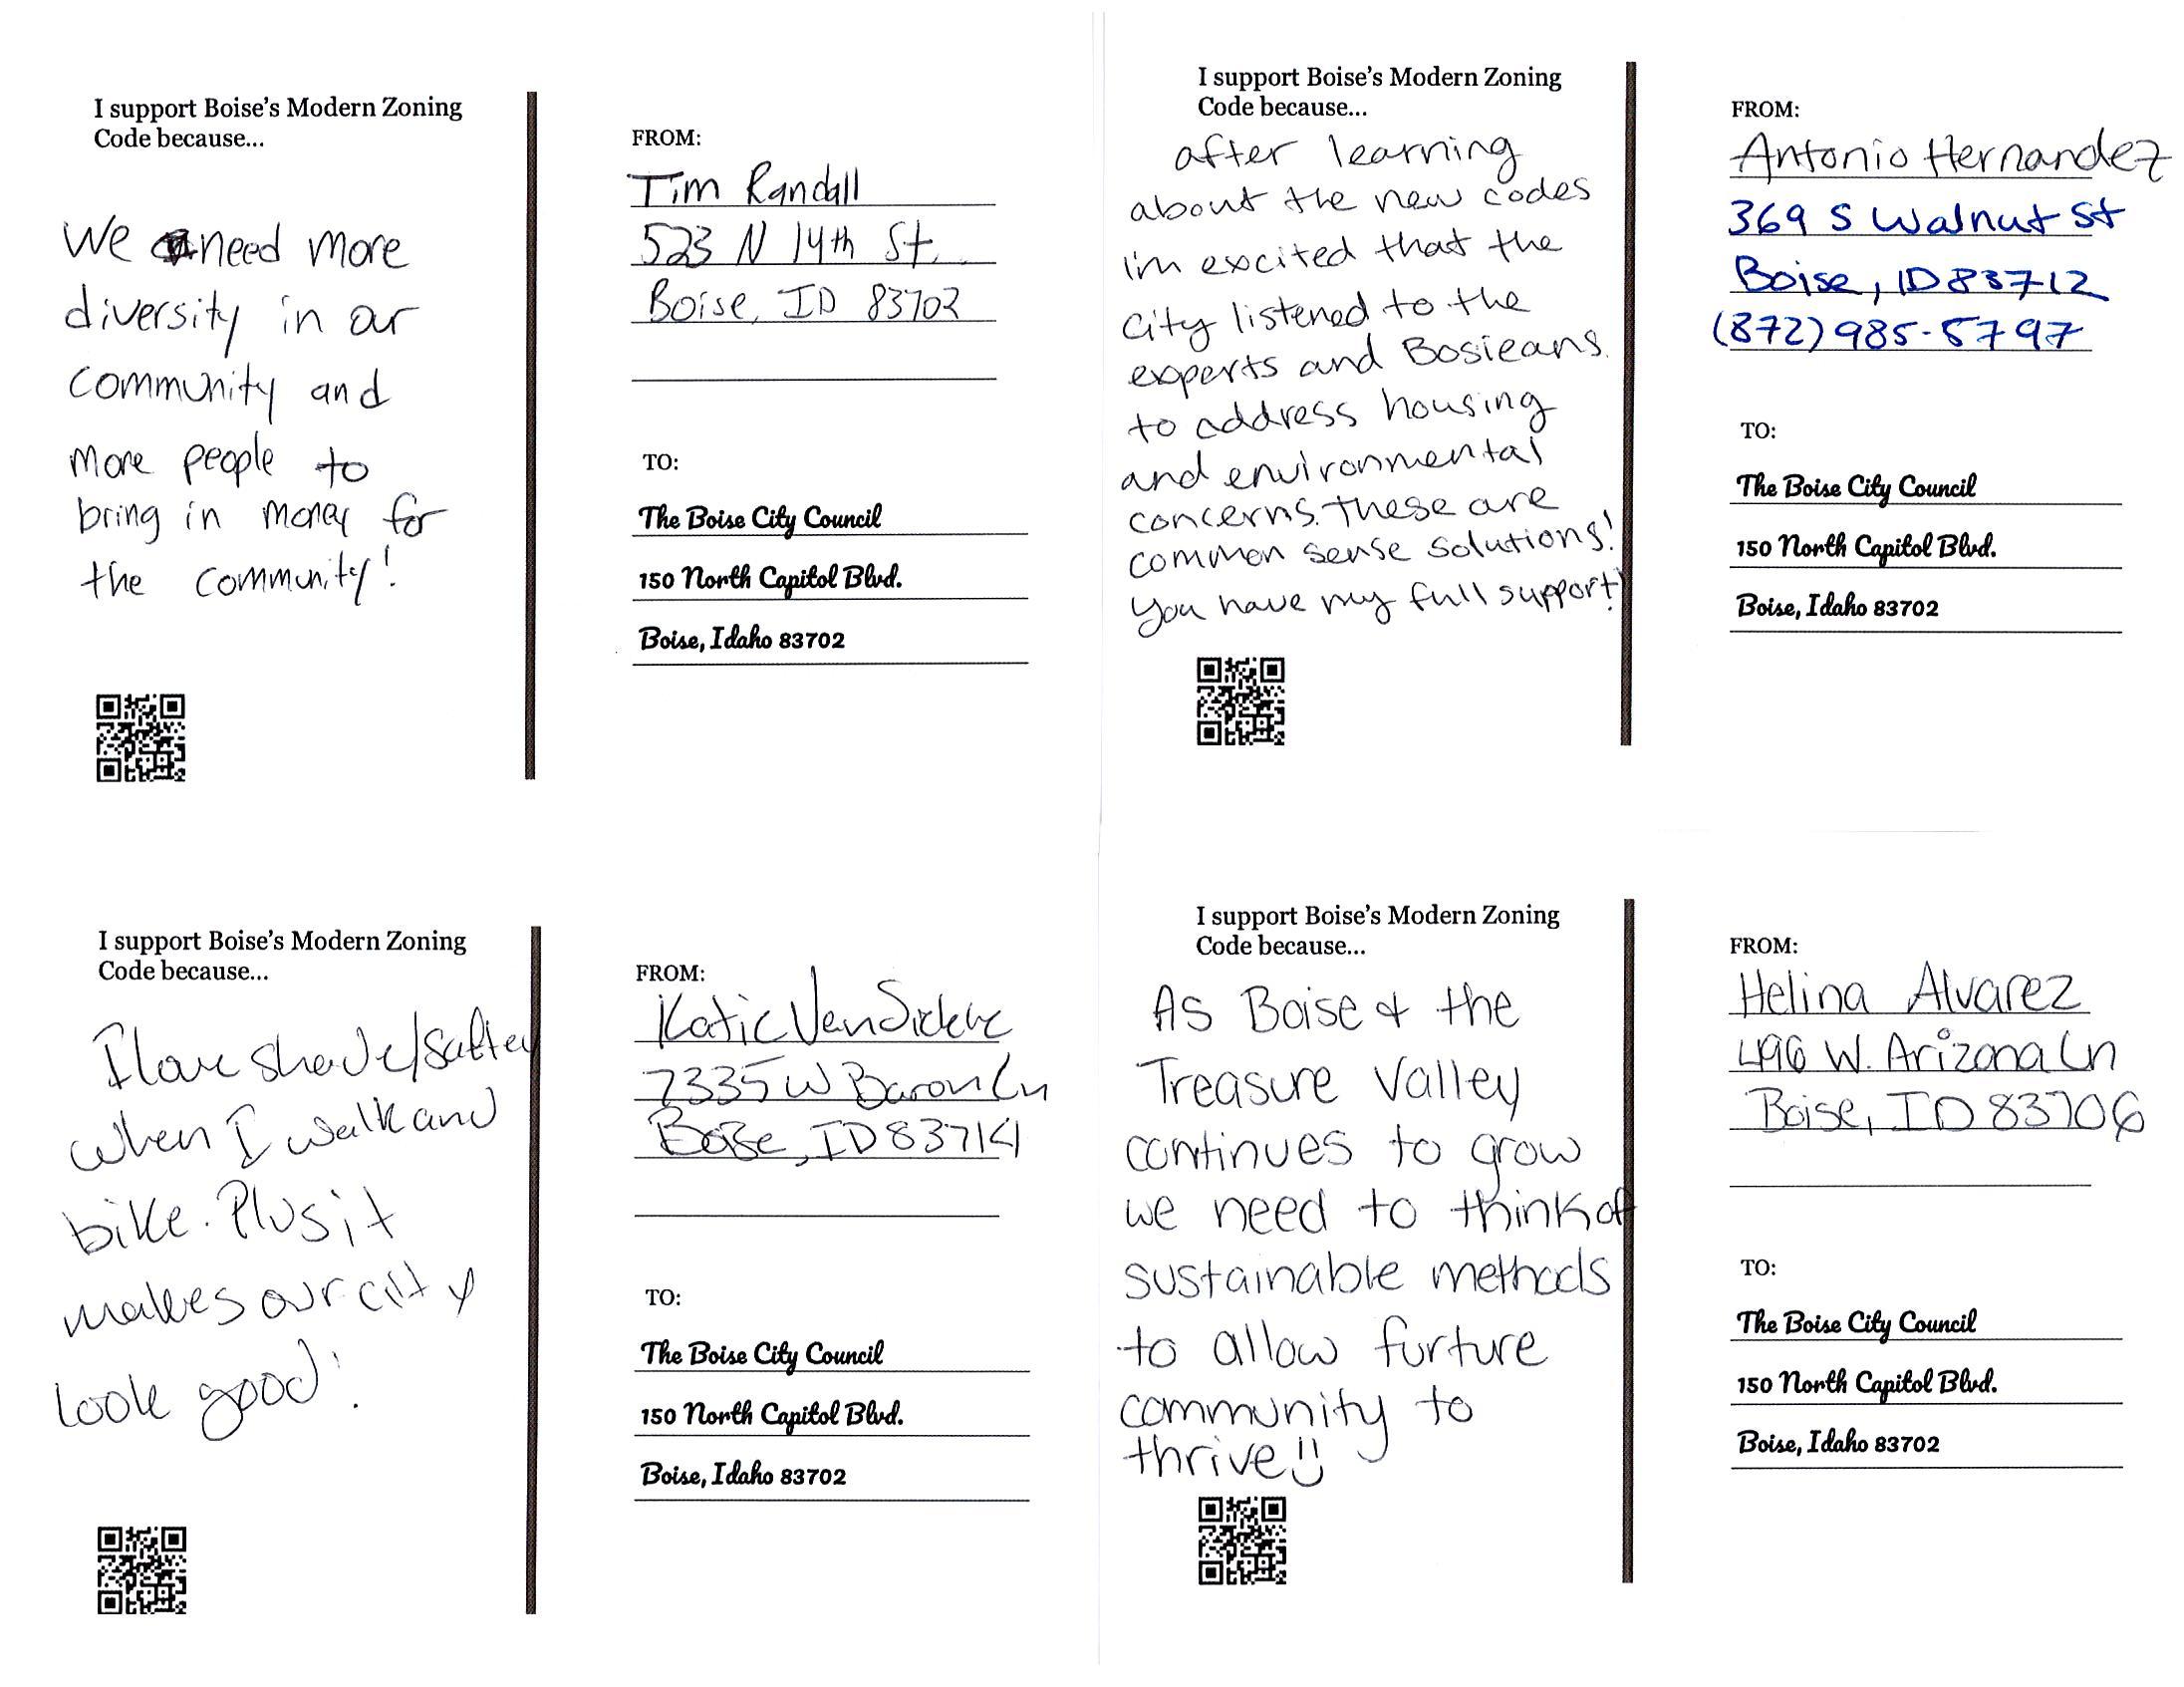 I support Boise's Modern Zoning
Code because...
We need more
diversity in our
community and
more people to
bring in money for
the community!
FROM:
Tim Randall
523 N 14th St.
Boise, ID 83702
TO:
The Boise City Council
150 North Capitol Blvd.
Boise, Idaho 83702
I support Boise's Modern Zoning
Code because...
after learning
about the new codes
I'm excited that the
City listened to the
experts and Bosieans
to address housing
and environmental
concerns. These are
common sense solutions!
You have my full support!
FROM:
Antonio Hernandez
369 S Walnut St
Boise, ID 83712
(872) 985-5797
TO:
The Boise City Council
150 North Capitol Blvd.
Boise, Idaho 83702
I support Boise's Modern Zoning
Code because...
I love shade/saftey
when I walk and
bike. Plus it
makes our city
look good!
FROM:
Katie VanSickle
7335 W Baron Ln
Boise, ID 83714
TO:
The Boise City Council
150 North Capitol Blvd.
Boise, Idaho 83702
I support Boise's Modern Zoning
Code because...
As Boise & the
Treasure Valley
continues to grow
we need to think of
sustainable methods
to allow furture
community to
thrive!!
FROM:
Helina Alvarez
496 W. Arizona Ln
Boise, ID 83706
TO:
The Boise City Council
150 North Capitol Blvd.
Boise, Idaho 83702